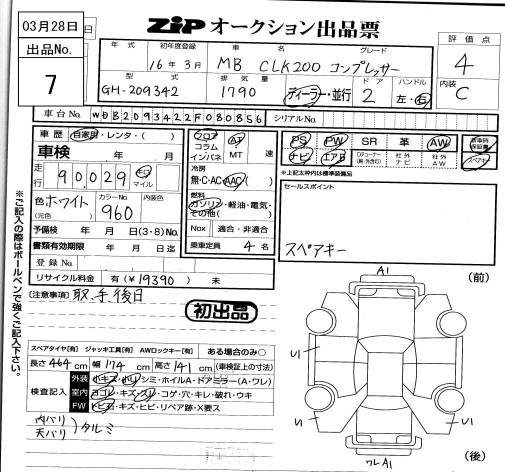 03月28日
出品No.
7
ZIP オークション出品票
評価点
4
内装
C
年式 初年度登録 車名 グレード
16年3月 MB CLK200 コンプレッサー
型式 排気量 ドア ハンドル
GH-209342 1790 ディーラー・並行 2 左・右
車台No. WDB2093422F080856 シリアルNo.
車歴 自家用・レンタ・( )
車検 年 月
走行 90,029 キロ マイル
色 ホワイト カラーNo. 960 内装色
(元色)
予備検 年 月 日(3・8)No.
書類有効期限 年 月 日迄
登録No.
リサイクル料金 有(¥19390) 未
フロア
コラム
インパネ
AT
MT 速
冷房
無・C・AC・AAC
燃料
ガソリン・軽油・電気・
その他( )
Nox 適合・非適合
乗車定員 4名
PS PW SR 革 AW
ナビ エアB 社外ナビ 社外AW
新車時保証書
スペアキー
※上記太枠内は標準装備品
セールスポイント
スペアキー
[注意事項] 取.手後日
初出品
※ご記入の際はボールペンで強くご記入下さい。
スペアタイヤ[有] ジャッキ工具[有] AWロックキー[有] ある場合のみ○
長さ 464cm 幅 174cm 高さ 141cm (車検証上の寸法)
検査記入
外装 小キズ・小リシミ・ホイルA・ドアミラー(A・ワレ)
室内 ヨゴレ・キズ・スレ・コゲ・穴・キレ・破れ・ウキ
FW トビ石・キズ・ヒビ・リペア跡・X要ス
内バリ
天バリ
タルミ
A1
(前)
U1
U1
U1
ワレA1
(後)